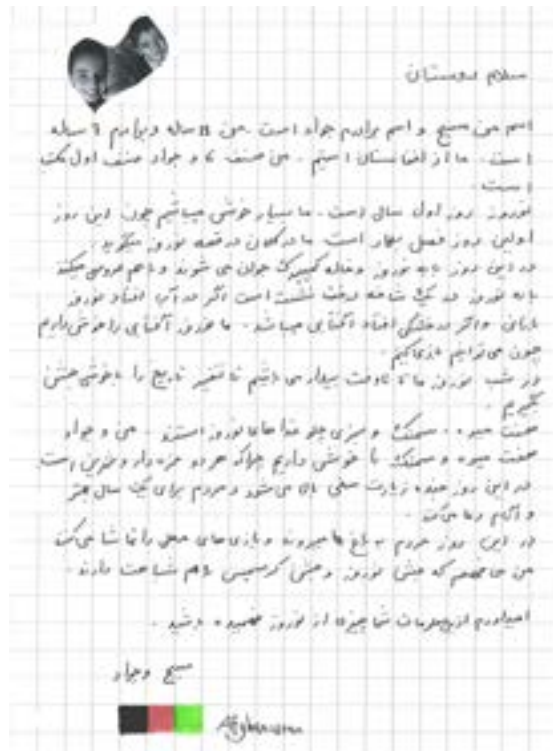 سلام دوستان
اسم من مسیح و اسم برادرم جواد است. من 11 ساله و برادرم 7 ساله
است. ما از افغانستان استیم. من صنف و جواد صنف اول مکتب
است.
نوروز روز اول سال است. ما بسیار خوشی میباشیم چون این روز
اولین روز فصل بهار است ما در کلان در قصه نوروز میگوید:
در این روز بابه نوروز و خاله کمپیرک جوان می شوند و باهم عروسی میکند
بابه نوروز در یک شاخه درخت نشست است اگر در آب افتاد نوروز
بارانی و اگر در خشکی افتاد آفتابی میباشد. ما نوروز آفتابی را خوش داریم
چون می توانیم بازی کنیم.
در شب نوروز ما تا ناوقت بیدار می باشیم تا تغییر تاریخ را باخوشی جشن
بگیریم.
هفت میوه، سمنک و سبزی چلو غذا های نوروز استند. من و جواد
هفت میوه و سمنک را خوش داریم چراکه هر دو مزه دار و شیرین است.
در این روز جنده زیارت سخی بالا می شود و مردم برای یک سال بهتر
و آرام دعا می کند.
در این روز مردم به باغ ها میروند و بازی های محلی را تماشا می کند
من می فهمم که جشن نوروز و جشن کرسمس باهم شباهت دارند.
امیدوارم ازین معلومات شما چیزی از نوروز فهمیده باشید.
مسیح و جواد
Afghanistan